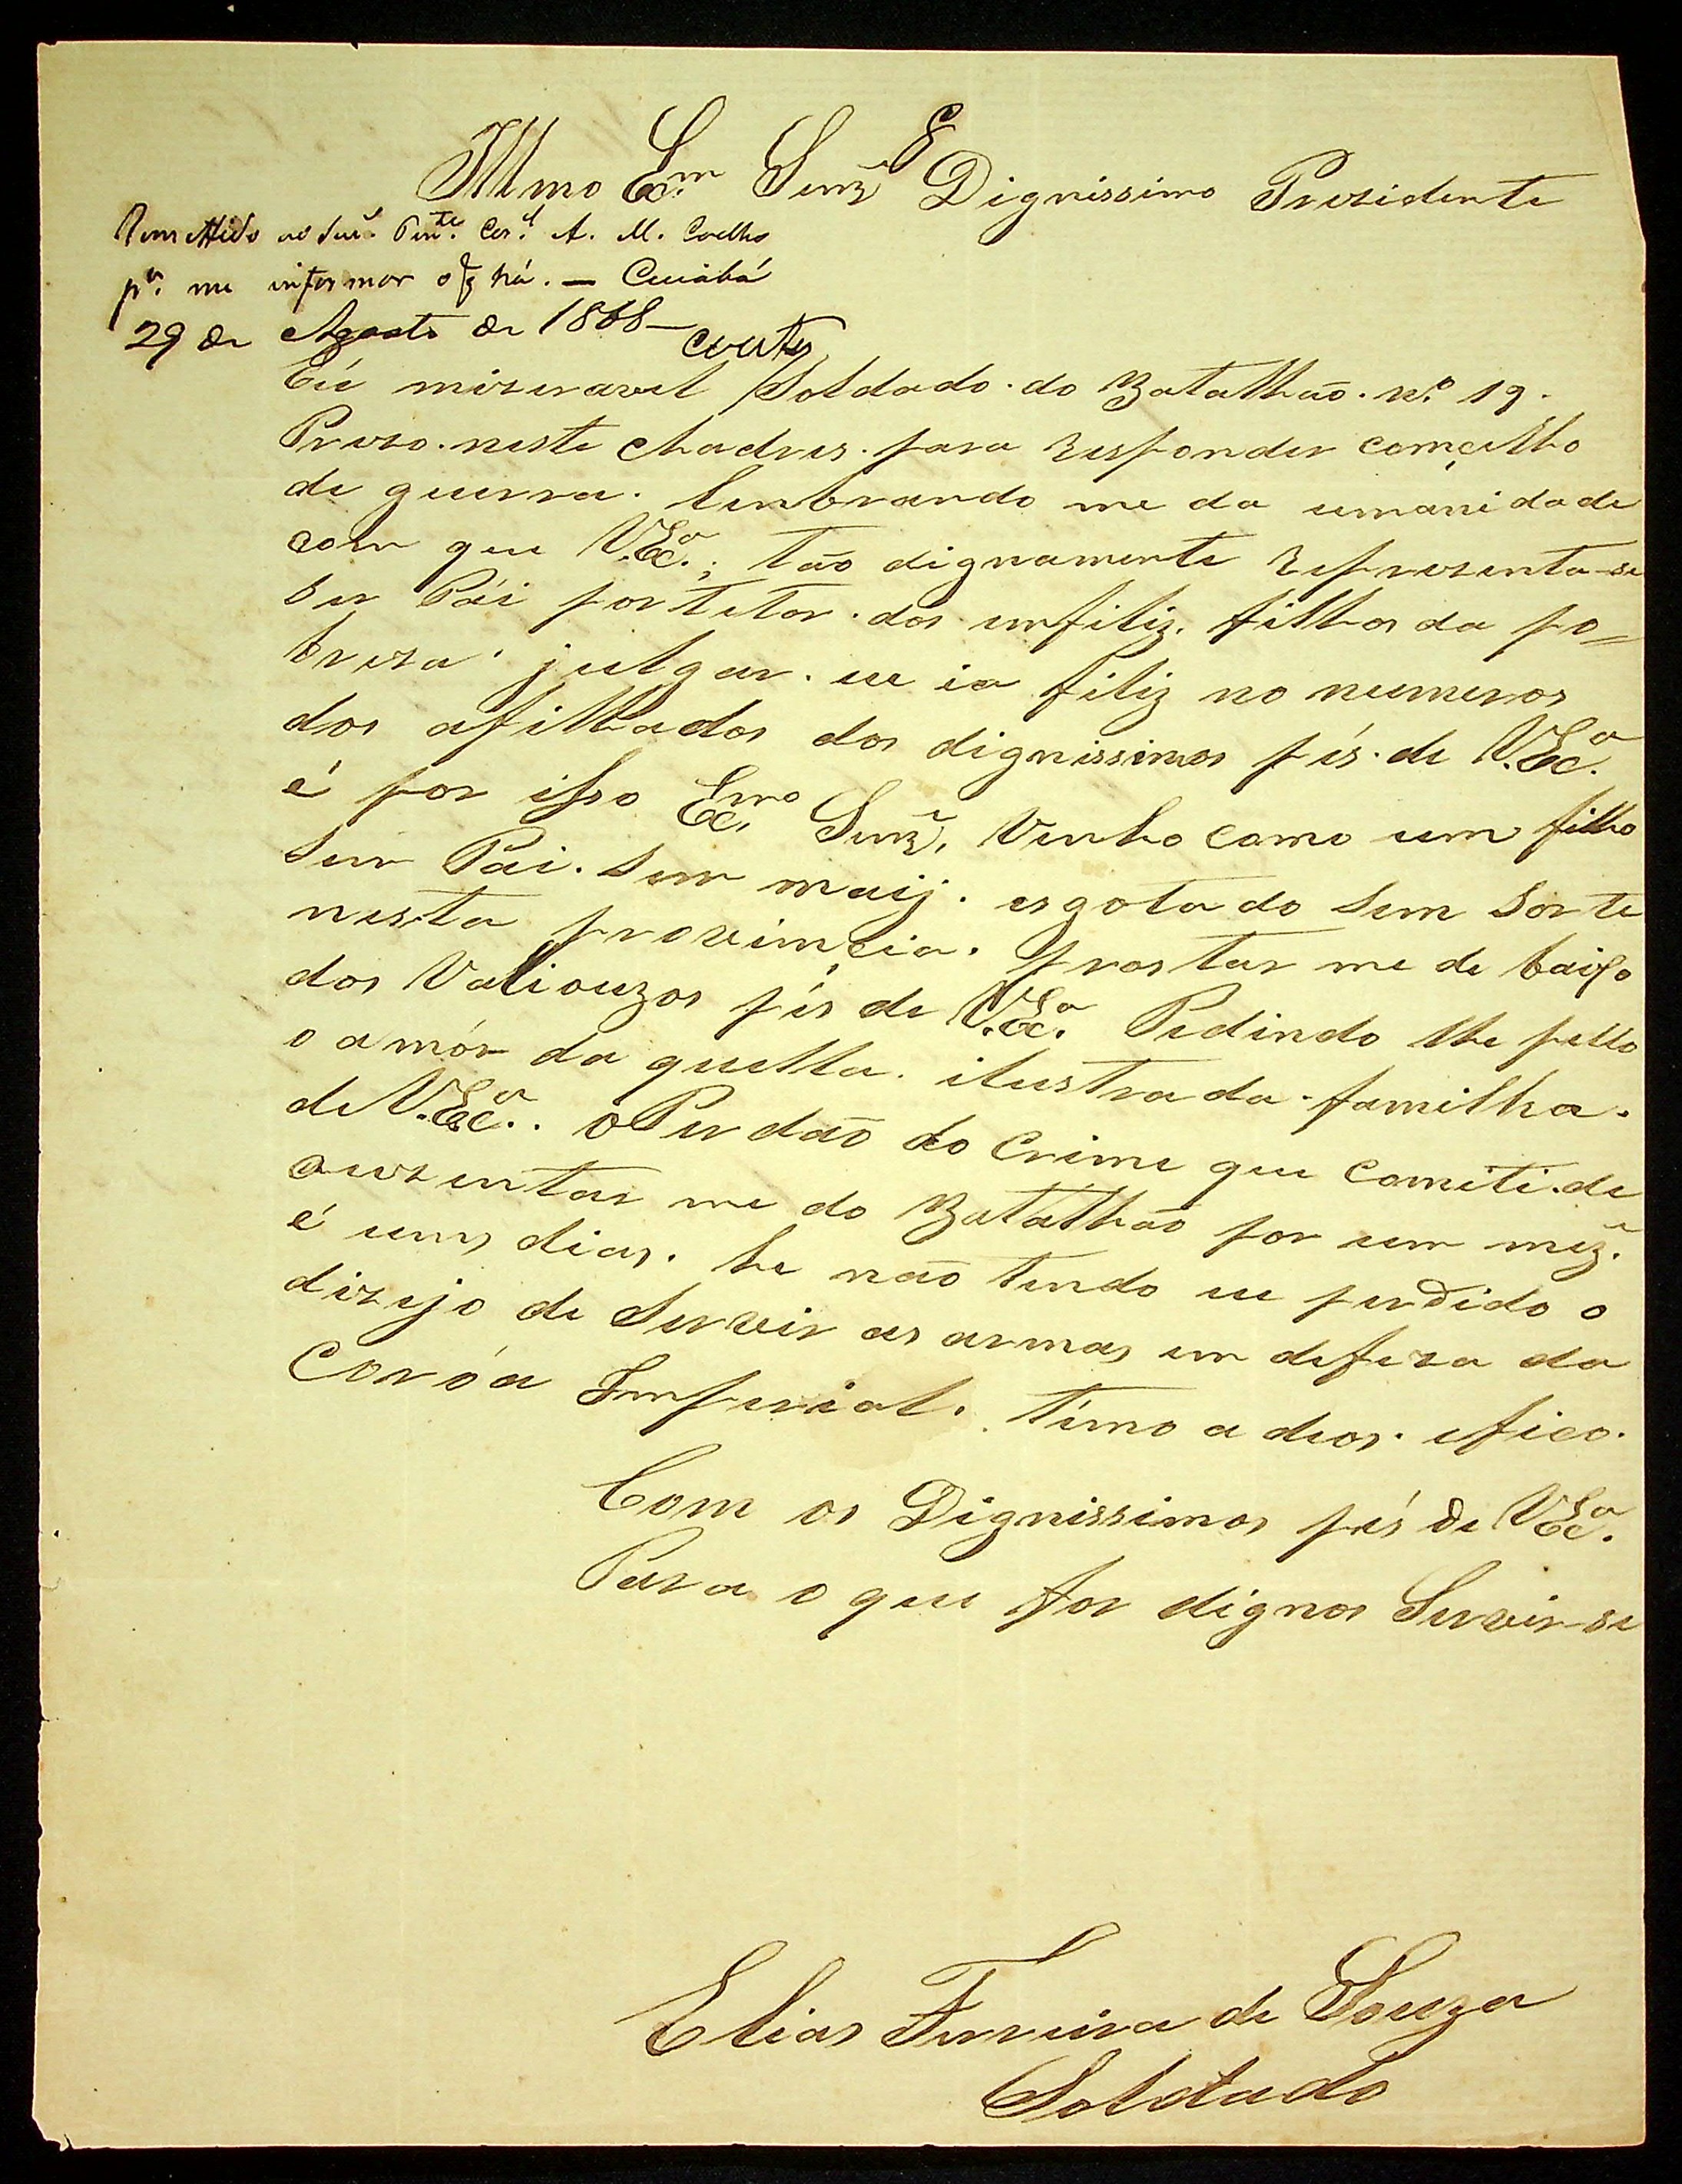 Illmo Ex.mo Senr. E Dignissimo Prezidente
Remettido ao Snr. Tente. Cor.el A. M. Coelho
pa. me informar o q há. — Cuiabá
29 de Agosto de 1868 —
Couto
Eú mizeravel Soldado. do Batalhaõ. No. 19.
Prezo. neste chadres. para responder comçelho
de guerra. lenbrando me da umanidade
com que V.Exa.; taõ dignamente reprezenta-se
ser Pái portetor. dos imfiliz. filhos da po=
breza. julgar. eu ia filiz no numeros
dos afilhados dos dignissimos pés. de V.Exa.
é por isso Exmo. Senr. Venho como um filho
sem Pai. sem maij. esgotado sem sorte
nesta provimçia. prostar me de baixo
dos Valiouzos pés de V.Exa. Pedindo lhe pello
o amór da quella. ilustrada. familha.
de V.Exa.. o Perdaõ do Crime que Cometi. de
auzentar me do Batalhaõ por um mez.
é uns dias. he naõ tendo eu perdido o
dizejo de Servir as armas em defeza da
Coróa Imperial. Timo a deos. efico.
Com os Dignissimos pés de V.Exa.
Para o que for dignos Servir-se
Elias Ferreira de Souza
Soldado